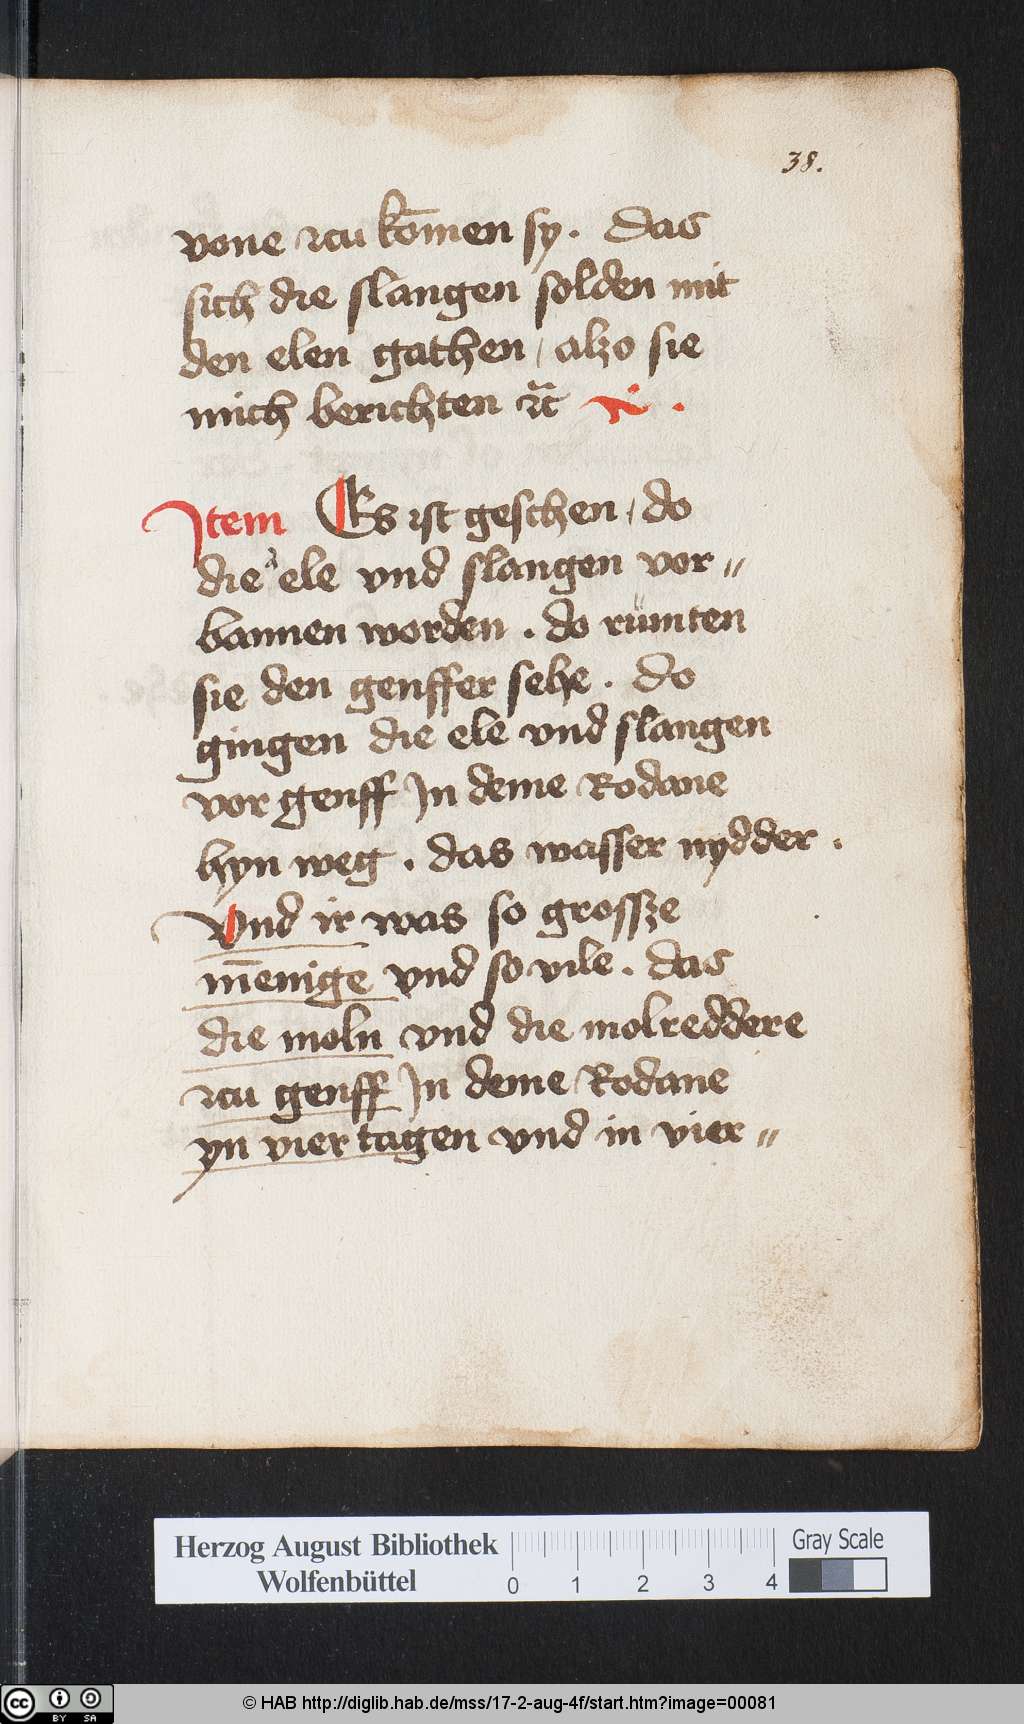 38.
vone zcu kom̄en sy. das
sich die slangen solden mit
den elen gathen / alzo sie
mich berichten ꝛc̃
Item Es ist geschen / do
die ele vnd slangen vor〃
bannen worden . do rümten
sie den genffer sehe . do
gingen die ele vnd slangen
vor genff Jn deme Rodane
hyn weg . das wasser nydder .
Vnd ir was so grossze
m̄enige vnd so vile . das
die moln vnd die molreddere
zcu genff Jn deme Rodane
yn vier tagen vnd in vier〃
Herzog August Bibliothek
Wolfenbüttel
0 1 2 3 4
Gray Scale
cc BY SA
© HAB http://diglib.hab.de/mss/17-2-aug-4f/start.htm?image=00081